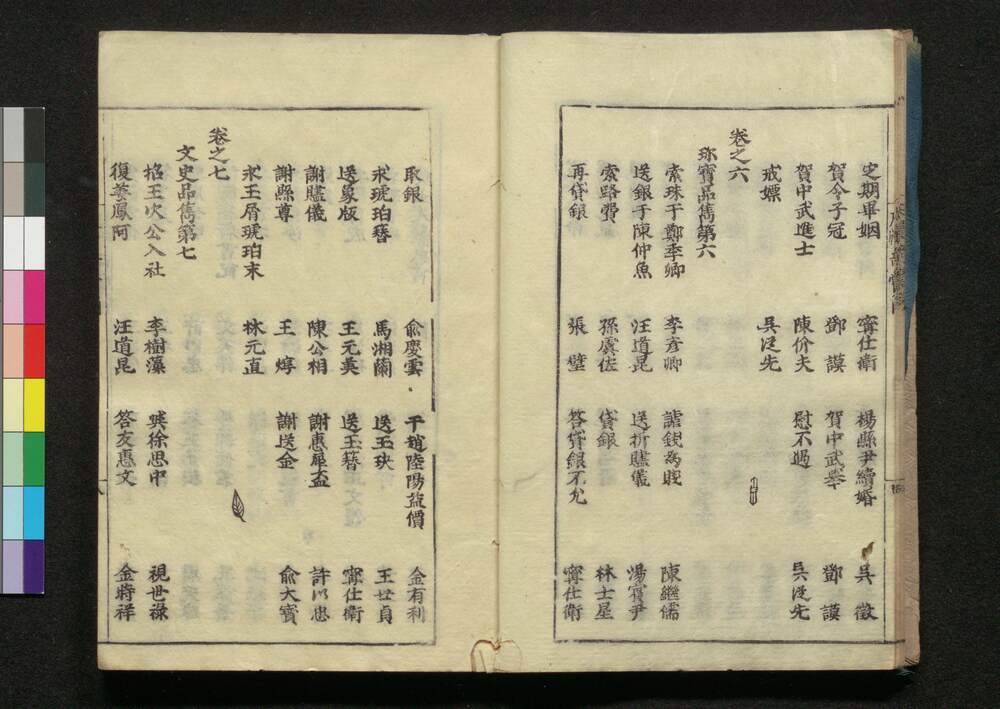 定期畢姻 甯仕衛 楊縣尹續婚 吳徵
賀令子冠 鄧謨 賀中武舉 鄧謨
賀中武進士 陳价夫 慰不遇 吳從先
戒嫖 吳從先
卷之六
珎寶品雋第六
索珠于鄭季卿 李彥卿 誚銳為賤 陳繼儒
送銀于陳仲魚 汪道昆 送折贐儀 湯賓尹
索路費 孫虞佐 貸銀 林士星
再貸銀 張壁 答貸銀不允 甯仕衛
取銀 俞慶雲 干趙陸陽益價 金有利
求琥珀簪 馬湘蘭 送玉玦 王世貞
送象版 王元美 送玉簪 甯仕衛
謝贐儀 陳公相 謝惠犀盃 許以忠
謝縣尊 王焞 謝送金 俞大寶
求玉屑琥珀末 林元直
卷之七
文史品雋第七
招王次公入社 李樹藻 與徐思中 視世祿
復姜鳳阿 汪道昆 答友惠文 金時祥